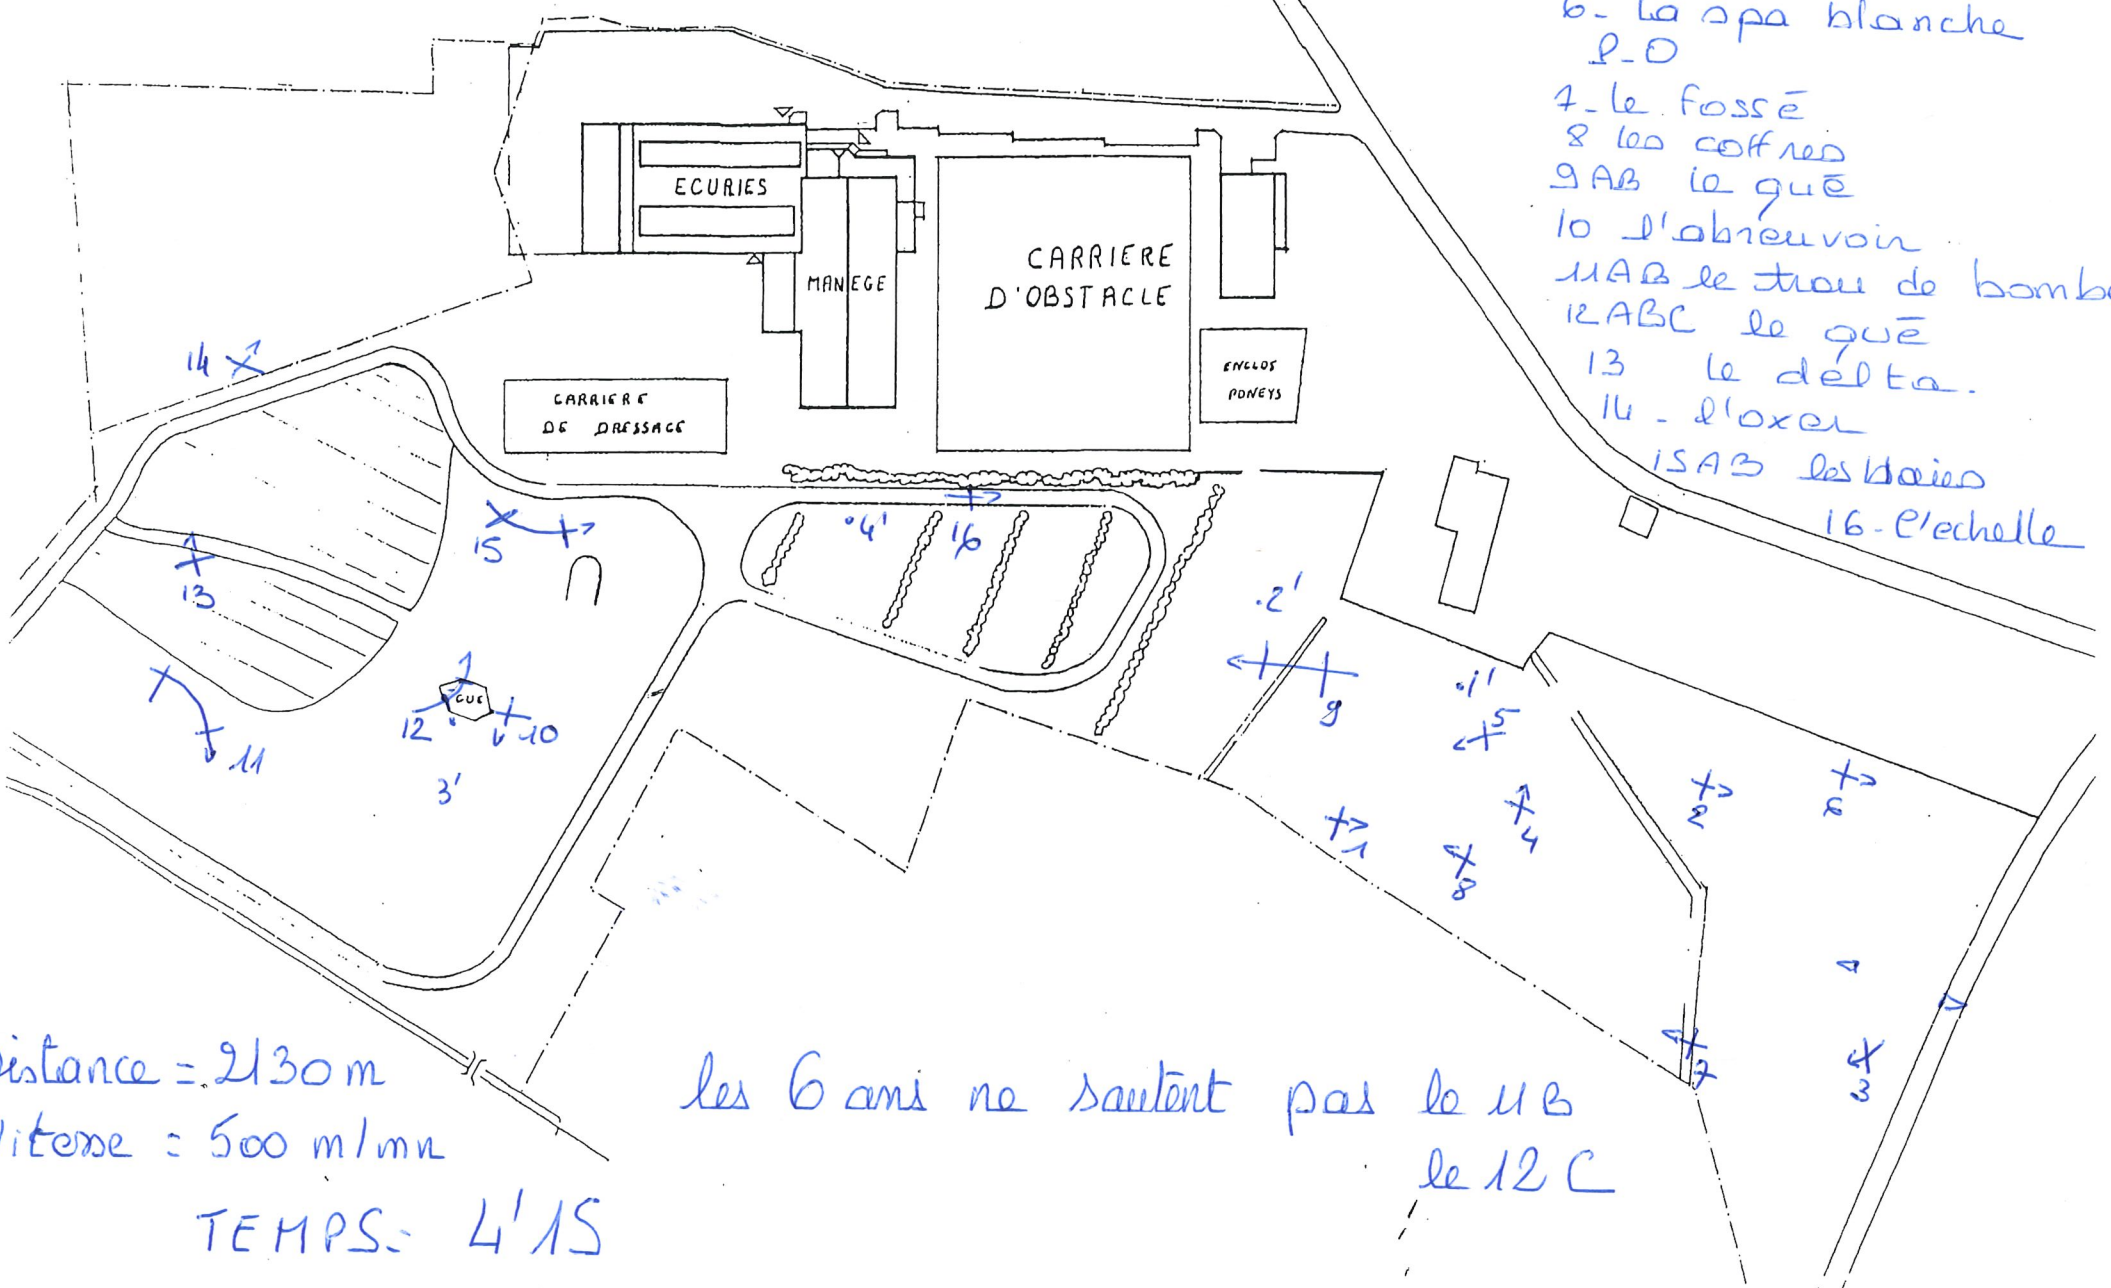 6- La spa blanche
P-O
7-le fossé
8 les coffres
9AB le gué
10 l'abreuvoir
11AB le trou de bombe
12ABC le gué
13 le délta.
14 - l'oxer
15AB les haies
16-l'echelle
ECURIES
MANEGE
CARRIERE
D'OBSTACLE
ENCLOS
PONEYS
CARRIERE
DE DRESSAGE
14
15
.4'
16
13
.2'
9
.1'
5
GUE
12
10
11
3'
1
8
4
2
6
7
3
istance = 2130 m
itesse = 500 m/mn
TEMPS= 4'15
les 6 ans ne sautent pas le 11B
le 12C